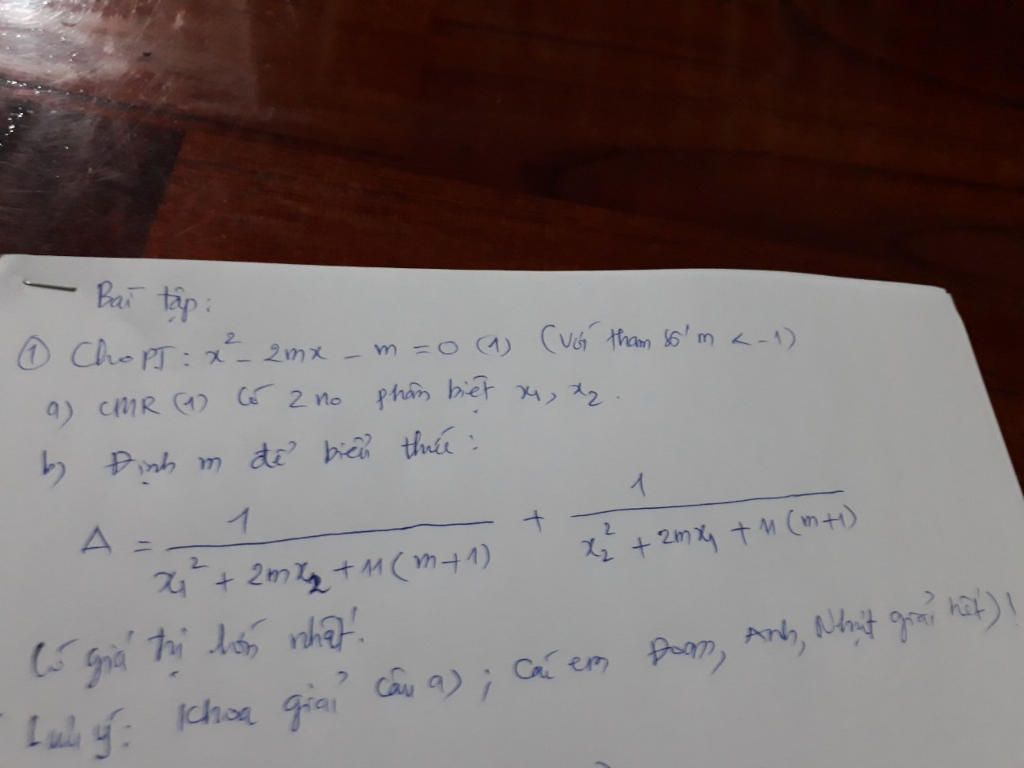 Bài tập:
① Cho PT: x² - 2mx - m = 0 (1) (Với tham số m < -1)
a) CMR (1) có 2 no phân biệt x₁, x₂.
b) Định m để biểu thức:
A = 1/(x₁² + 2mx₂ + 11(m+1)) + 1/(x₂² + 2mx₁ + 11(m+1))
Có giá trị lớn nhất.
Lưu ý: Khoa giải câu a); Các em Đoan, Anh, Nhật giải hết)!